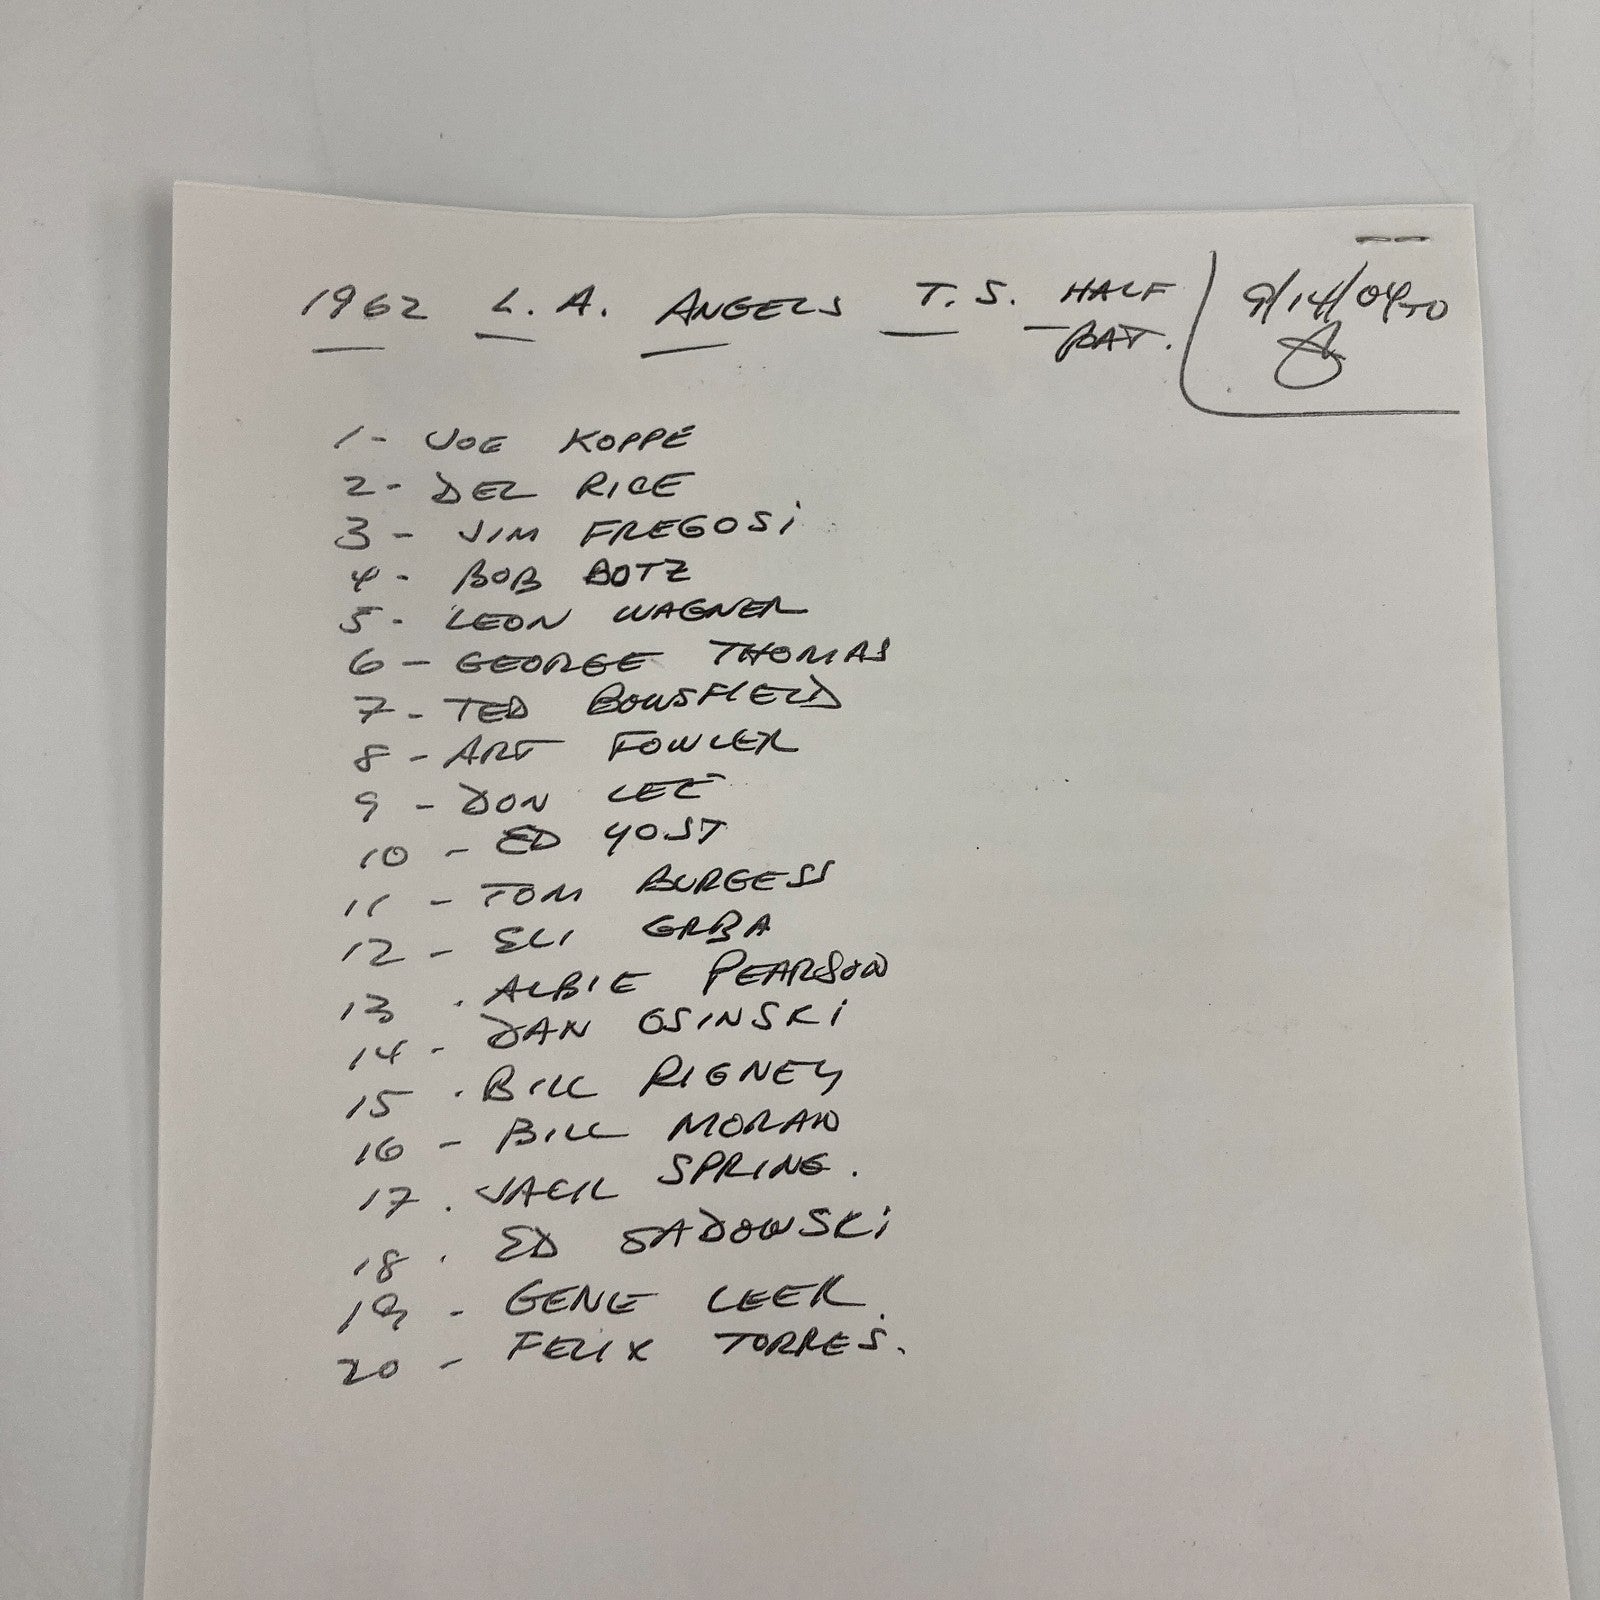 1962 L.A. ANGELS T.S. HALF
BAT.
9/14/04
1- JOE KOPPE
2- DEL RICE
3- JIM FREGOSI
4- BOB BOTZ
5- LEON WAGNER
6- GEORGE THOMAS
7- TED BOWSFIELD
8- ART FOWLER
9- DON LEE
10- ED YOST
11- TOM BURGESS
12- ELI GRBA
13. ALBIE PEARSON
14- DAN OSINSKI
15. BILL RIGNEY
16- BILL MORAN
17. JACK SPRING.
18. ED SADOWSKI
19- GENE LEEK
20- FELIX TORRES.